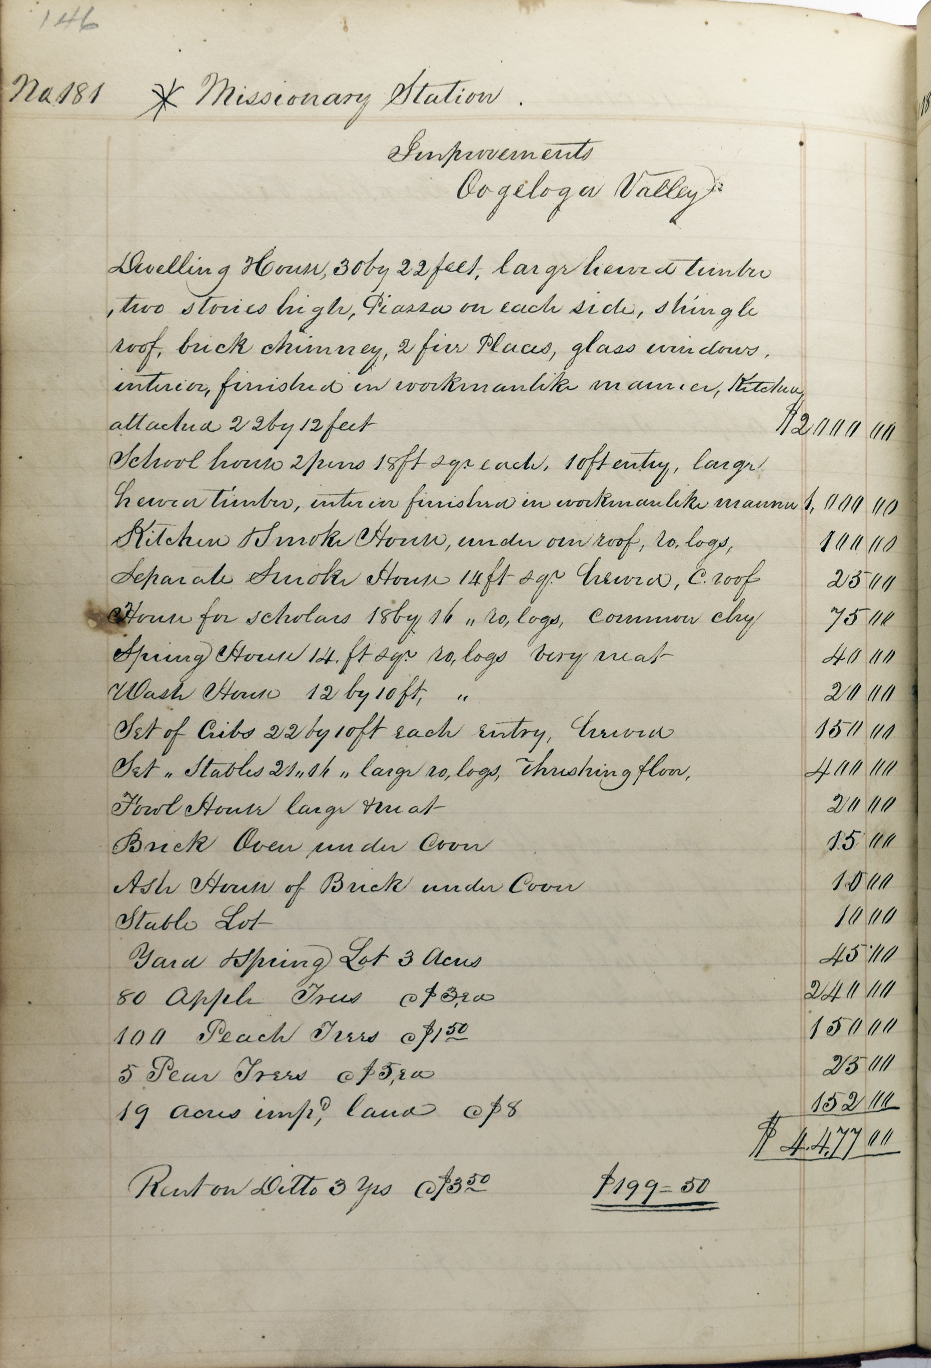 146
No 181 * Missionary Station.
Improvements
Oogeloga Valley:
Dwelling House, 30 by 22 feet, large hewed timber
, two stories high, Piazza on each side, shingle
roof, brick chimney, 2 fire Places, glass windows,
interior, finished in workmanlike manner, Kitchen
attached 22 by 12 feet $2000 00
School house 2 pens 18 ft sqr. each, 10 ft entry, large
hewed timber, interior finished in workmanlike manner 1,000 00
Kitchen & Smoke House, under one roof, ro, logs, 100 00
Separate Smoke House 14 ft sqr. hewed, C. roof 25 00
House for scholars 18 by 16 " ro, logs, common chy 75 00
Spring House 14. ft sqr. ro, logs very neat 40 00
Wash House 12 by 10 ft, " 20 00
Set of Cribs 22 by 10 ft each entry, hewed 150 00
Set " Stables 21 " 16 " large ro, logs, Thrushing floor, 400 00
Fowl House large & neat 20 00
Brick Oven under Cover 15 00
Ash House of Brick under Cover 10 00
Stable Lot 10 00
Yard & Spring Lot 3 Acres 45 00
80 Apple Trees @ $3, ea 240 00
100 Peach Trees @ $1 50 150 00
5 Pear Trees @ $5, ea 25 00
19 Acres impd, land @ $8 152 00
$ 4.477 00
Rent on Ditto 3 Yrs @ $3 50 $199=50